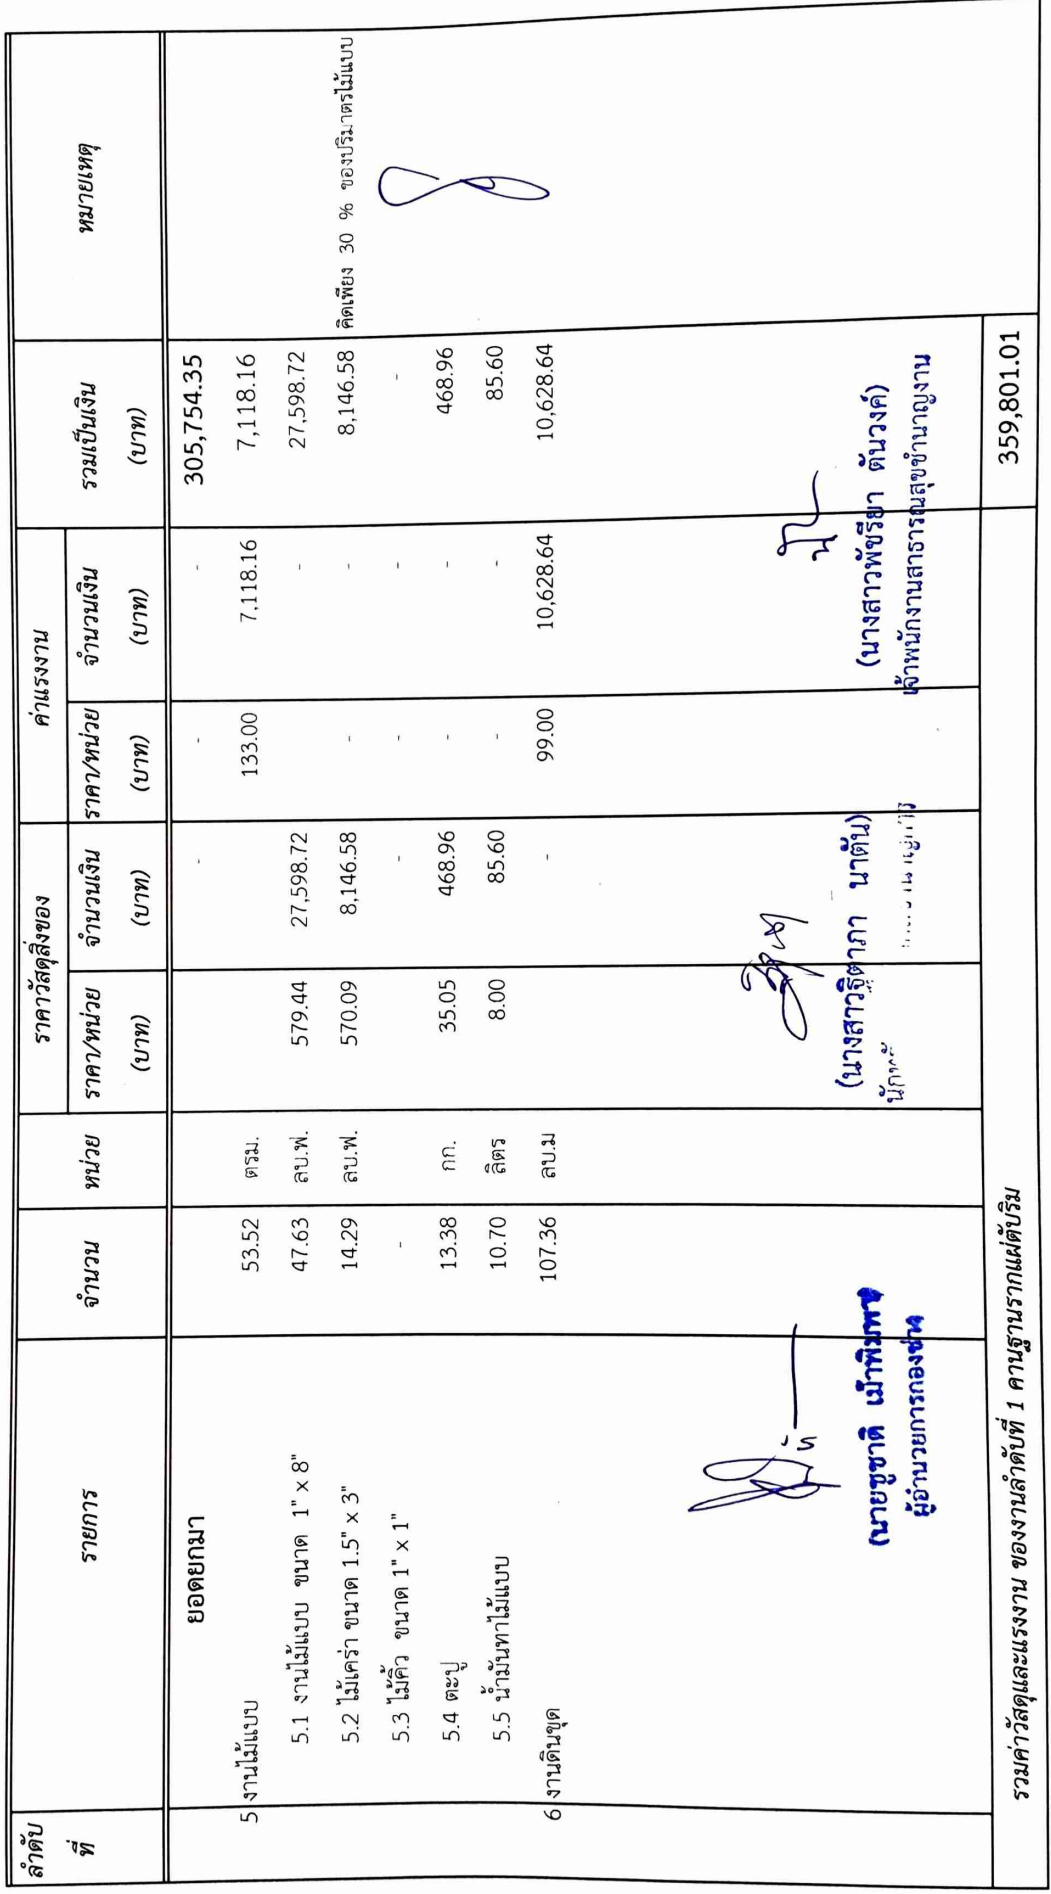 ลำดับที่ รายการ จำนวน หน่วย ราคาวัสดุสิ่งของ ค่าแรงงาน รวมเป็นเงิน (บาท) หมายเหตุ
ราคา/หน่วย (บาท) จำนวนเงิน (บาท) ราคา/หน่วย (บาท) จำนวนเงิน (บาท)
ยอดยกมา - - - 305,754.35
5 งานไม้แบบ 53.52 ตรม. 133.00 7,118.16 7,118.16
5.1 งานไม้แบบ ขนาด 1" x 8" 47.63 ลบ.ฟ. 579.44 27,598.72 - 27,598.72
5.2 ไม้เคร่า ขนาด 1.5" x 3" 14.29 ลบ.ฟ. 570.09 8,146.58 - - 8,146.58 คิดเพียง 30 % ของปริมาตรไม้แบบ
5.3 ไม้คิ้ว ขนาด 1" x 1" - - - - -
5.4 ตะปู 13.38 กก. 35.05 468.96 - - 468.96
5.5 น้ำมันทาไม้แบบ 10.70 ลิตร 8.00 85.60 - - 85.60
6 งานดินขุด 107.36 ลบ.ม - 99.00 10,628.64 10,628.64
(นายชูชาติ เม้าพิมพา)
ผู้อำนวยการกองช่าง
(นางสาวฐิตาภา นาตัน)
(นางสาวพัชรียา ตันวงค์)
เจ้าพนักงานสาธารณสุขชำนาญงาน
รวมค่าวัสดุและแรงงาน ของงานลำดับที่ 1 คานฐานรากแผ่ดับริม 359,801.01